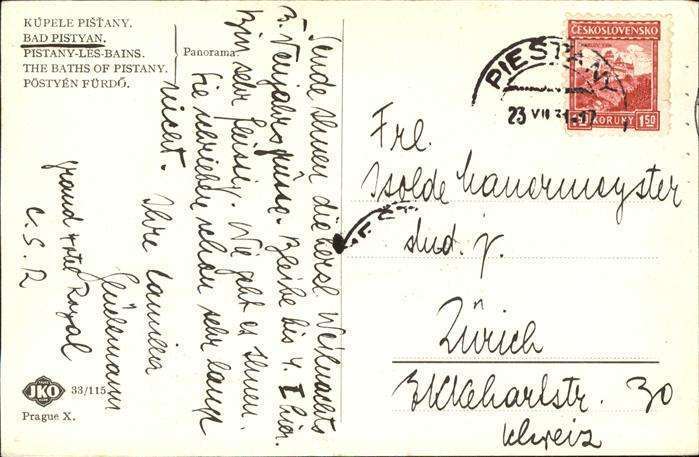 KÚPELE PIŠŤANY.
BAD PISTYAN.
PISTANY-LES-BAINS.
THE BATHS OF PISTANY.
PÖSTYÉN FÜRDŐ.
Panorama
Sende Ihnen die herzl Weihnachts
& Neujahrsgrüsse. Bleibe bis 4. I hier.
Bin sehr fleissig. Wie geht es Ihnen.
Sie schrieben schon sehr lange
nicht.
Ihre
Grand Hotel Royal
C. S. R
JKO
33/115.
Prague X.
ČESKOSLOVENSKO
KORUNY 1.50
PIEŠŤANY
23 VII
Frl.
Isolde
stud. j.
Zürich
Ekkehartstr. 30
Schweiz